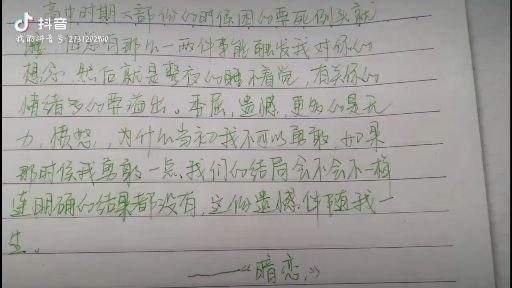 抖音
高中时期大部份的时候困的要死倒头就
睡 但总有那么一两件事能触发我对你的
想念 然后就是整夜的睡不着觉,有关你的
情绪多的要溢出。委屈,遗憾,更多的是无
力,愤怒,为什么当初我不可以勇敢,如果
那时候我勇敢一点,我们的结局会不会不一样
连明确的结果都没有,这份遗憾伴随我一
生。
——《暗恋》